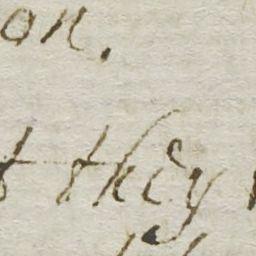 on.
they